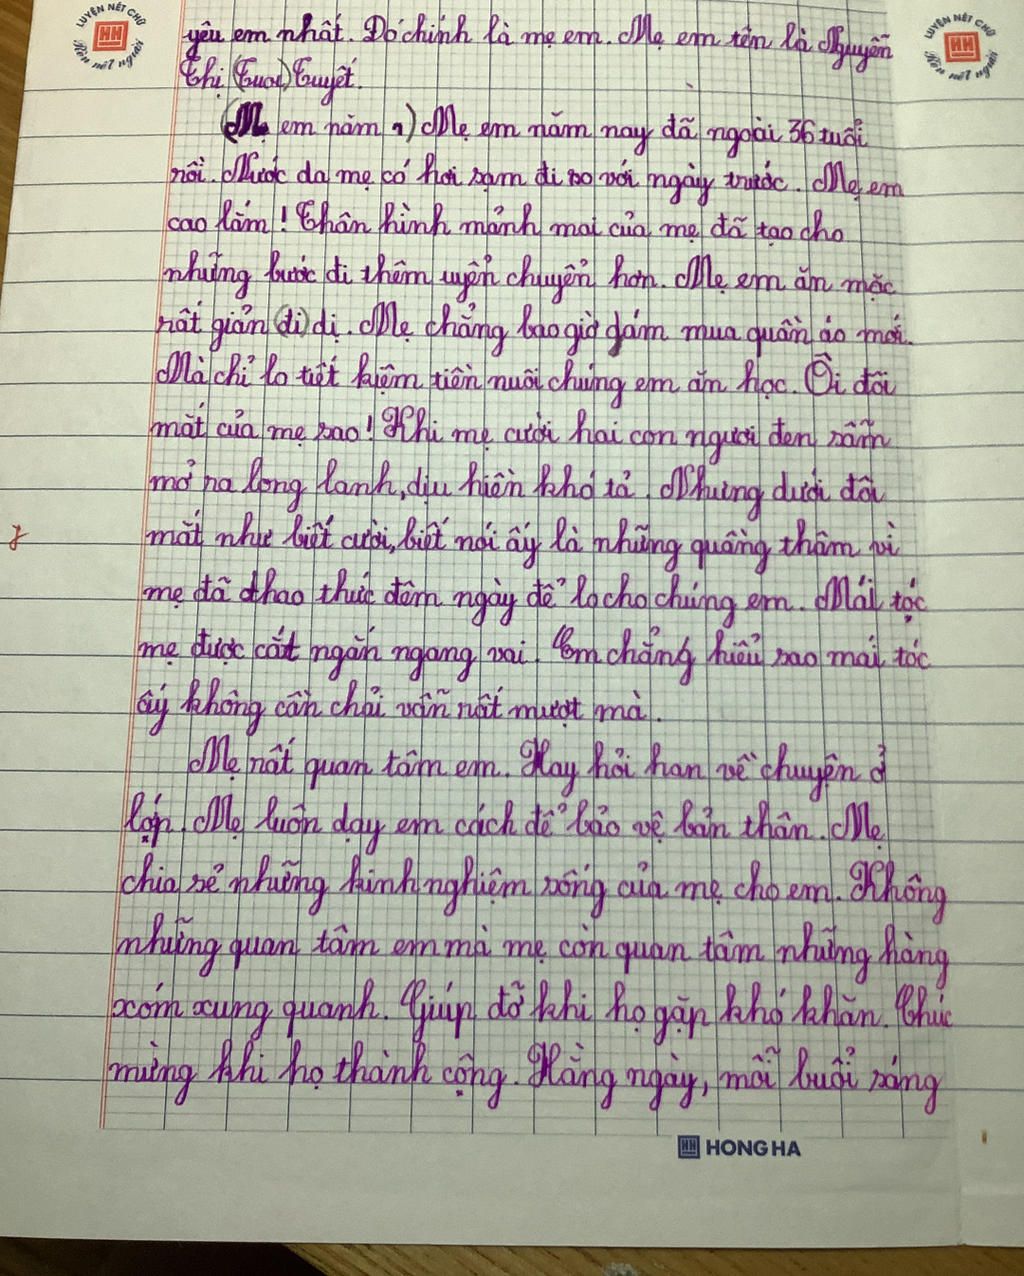 LUYỆN NÉT CHỮ
HH
Rèn nết người
LUYỆN NÉT CHỮ
HH
Rèn nết người
yêu em nhất. Đó chính là mẹ em. Mẹ em tên là Nguyễn
Thị (Tuơi) Tuyết.
(Mẹ em năm n) Mẹ em năm nay đã ngoài 36 tuổi
rồi. Nước da mẹ có hơi sạm đi so với ngày trước. Mẹ em
cao lắm! Thân hình mảnh mai của mẹ đã tạo cho
những bước đi thêm uyển chuyển hơn. Mẹ em ăn mặc
rất giản (di) dị. Mẹ chẳng bao giờ dám mua quần áo mới.
Mà chỉ lo tiết kiệm tiền nuôi chúng em ăn học. Ôi đôi
mắt của mẹ sao! Khi mẹ cười hai con ngươi đen sẫm
mở ra long lanh, dịu hiền khó tả. Nhưng dưới đôi
mắt như biết cười, biết nói ấy là những quầng thâm vì
mẹ đã thao thức đêm ngày để lo cho chúng em. Mái tóc
mẹ được cắt ngắn ngang vai. Em chẳng hiểu sao mái tóc
ấy không cần chải vẫn rất mượt mà.
Mẹ rất quan tâm em. Hay hỏi han về chuyện ở
lớp. Mẹ luôn dạy em cách để bảo vệ bản thân. Mẹ
chia sẻ những kinh nghiệm sống của mẹ cho em. Không
những quan tâm em mà mẹ còn quan tâm những hàng
xóm xung quanh. Giúp đỡ khi họ gặp khó khăn. Chúc
mừng khi họ thành công. Hằng ngày, mỗi buổi sáng
HH HONG HA